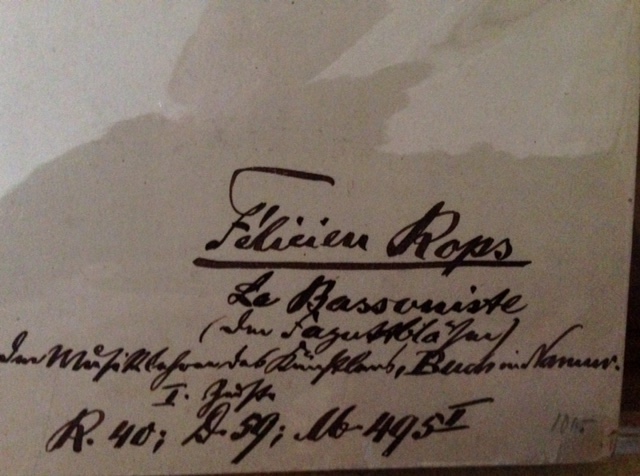 Félicien Rops
Le Bassoniste
(Der Fagottbläser)
Der Musiklehrer des Künstlers, in Namur.
I. Zust.
R. 40; D. 59; M. 495 I